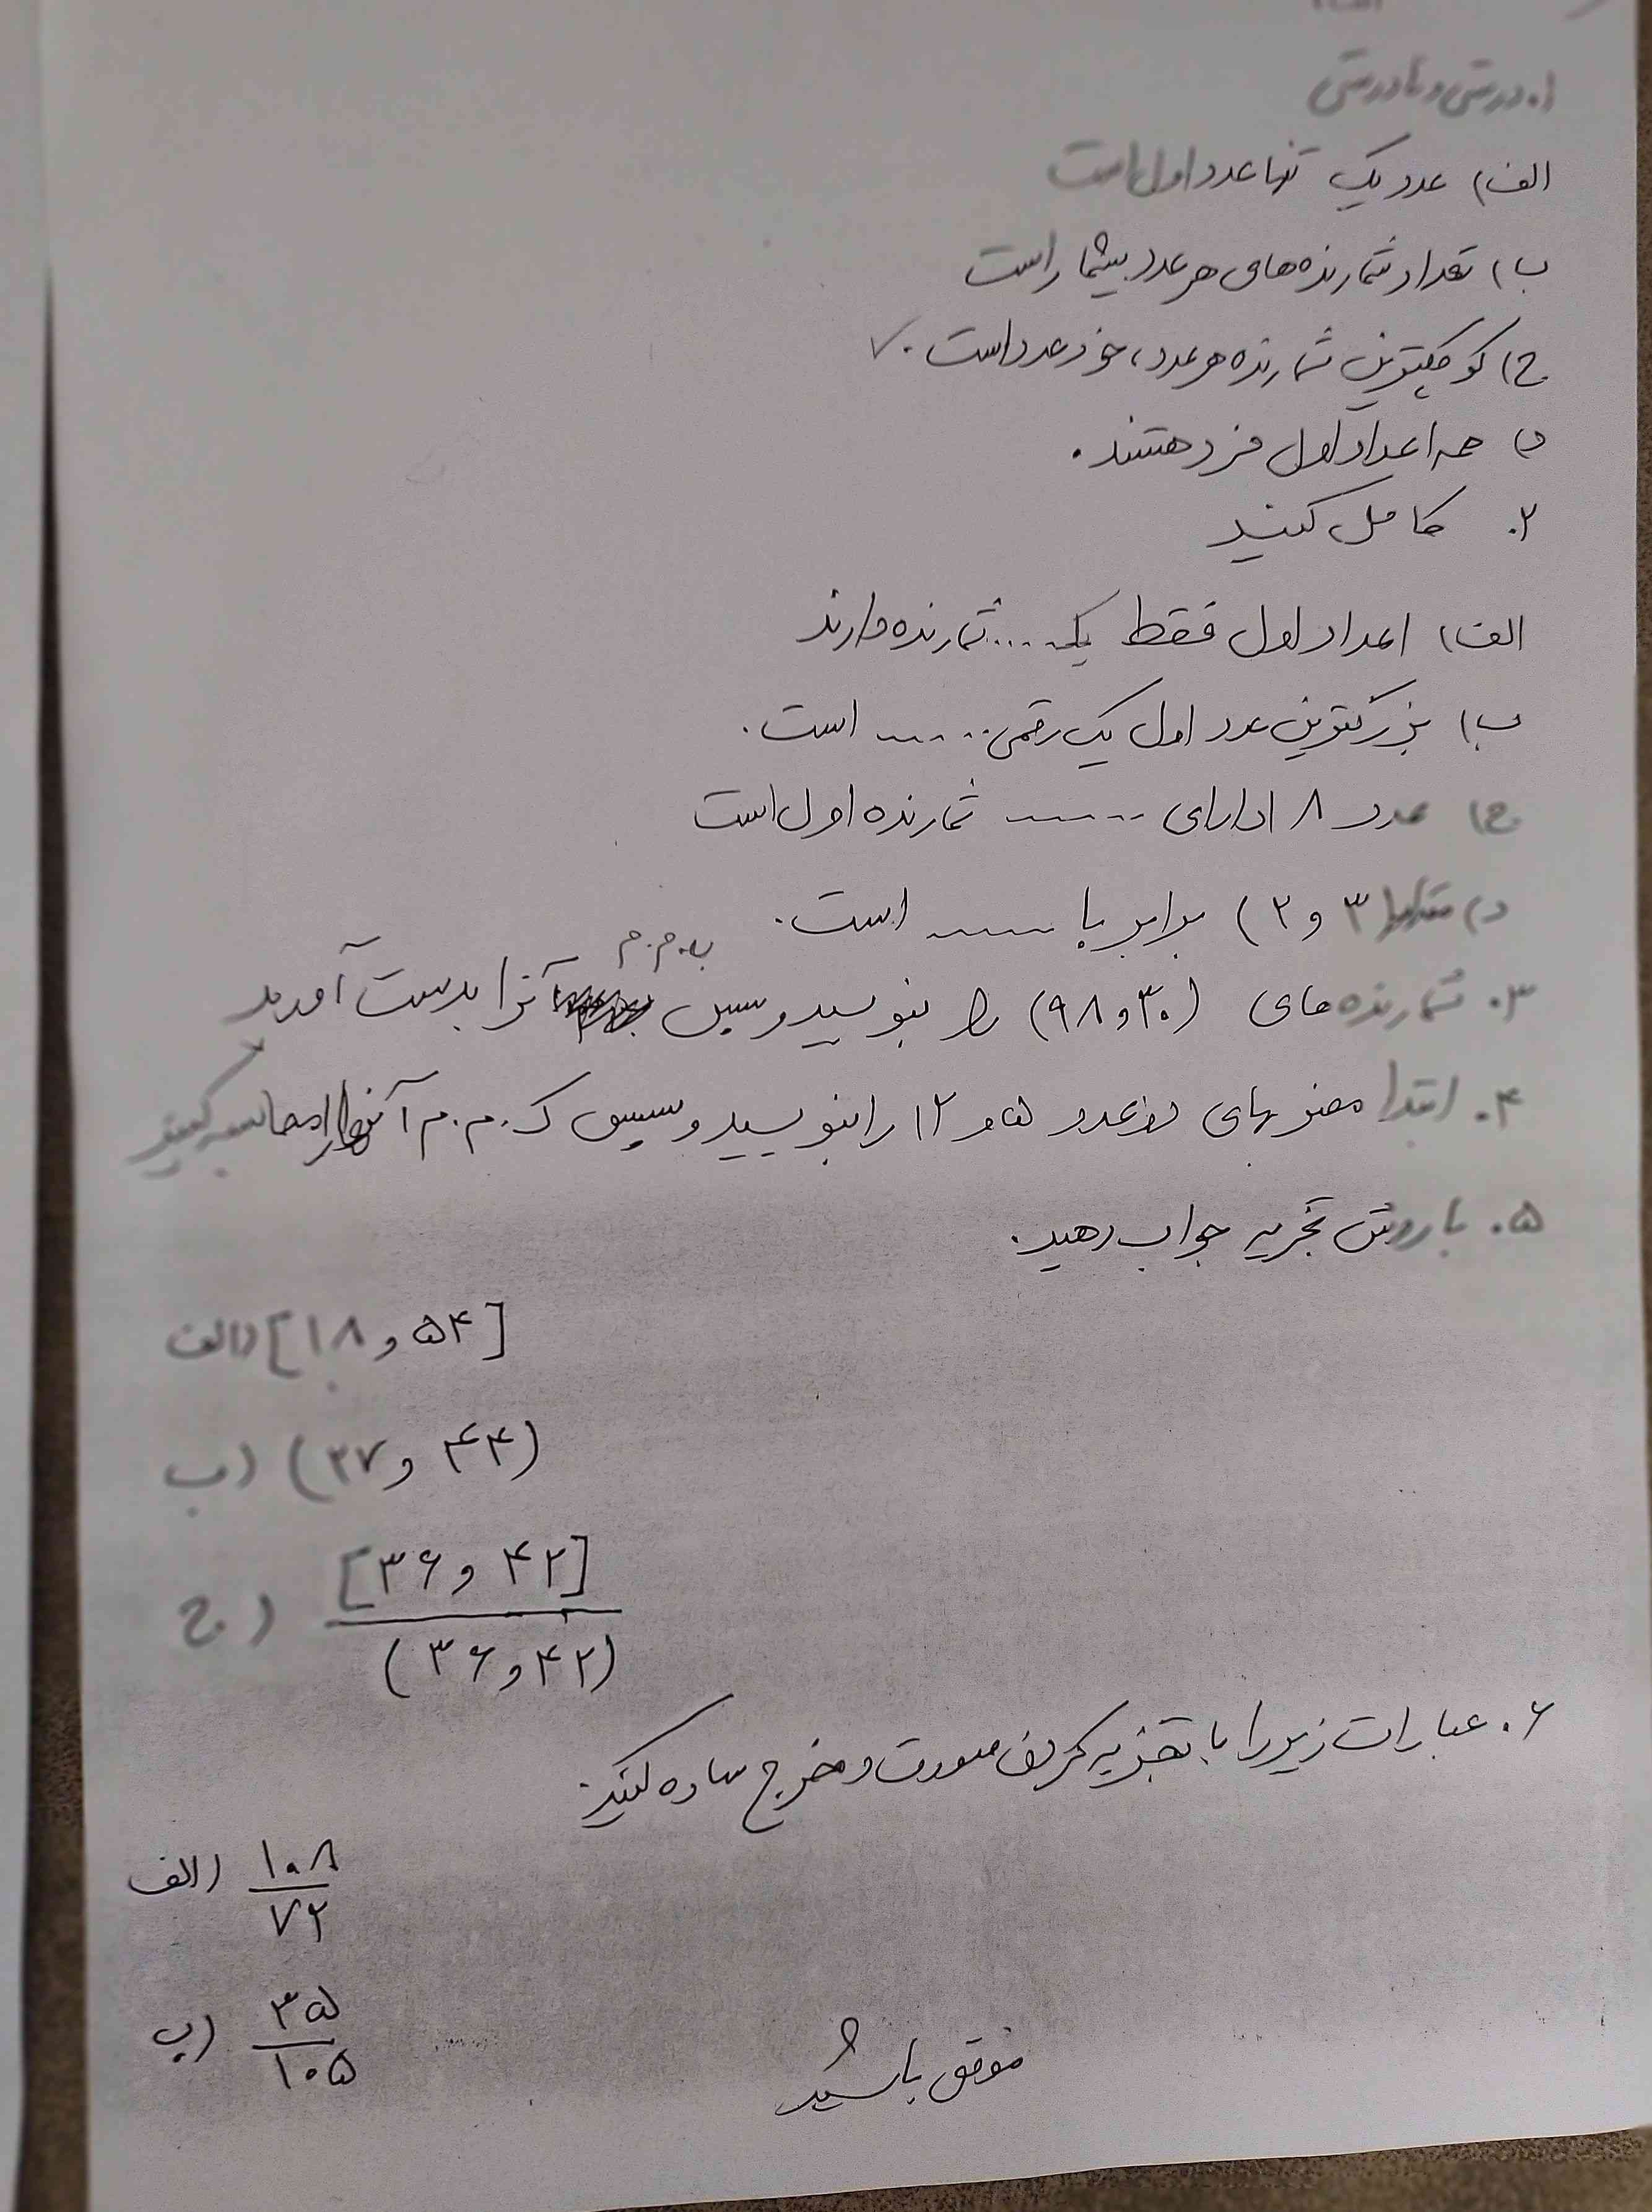 ۱. درستی و نادرستی
الف) عدد یک تنها عدد اول است
ب) تعداد شمارنده‌های هر عدد بیشمار است
ج) کوچکترین شمارنده هر عدد، خود عدد است. ✓
د) همه اعداد اول فرد هستند.
۲. کامل کنید
الف) اعداد اول فقط یک .... شمارنده دارند
ب) بزرگترین عدد اول یک رقمی ...... است.
ج) عدد ۱۸ دارای ...... شمارنده اول است
د) (۳ و ۲) برابر با ...... است.
۳. شمارنده‌های (۳۰ و ۹۸) را بنویسید و سپس ب.م.م آنرا بدست آورید
۴. ابتدا مضربهای دو عدد ۱۵ و ۱۲ را بنویسید و سپس ک.م.م آنها را محاسبه کنید
۵. با روش تجزیه جواب دهید.
الف) [۱۸ و ۵۴]
ب) (۲۷ و ۴۴)
ج) [۳۶ و ۴۲]
(۳۶ و ۴۲)
۶. عبارات زیر را با تجزیه کردن صورت و مخرج ساده کنید:
الف) ۱۰۸
۷۲
ب) ۳۵
۱۰۵
موفق باشید